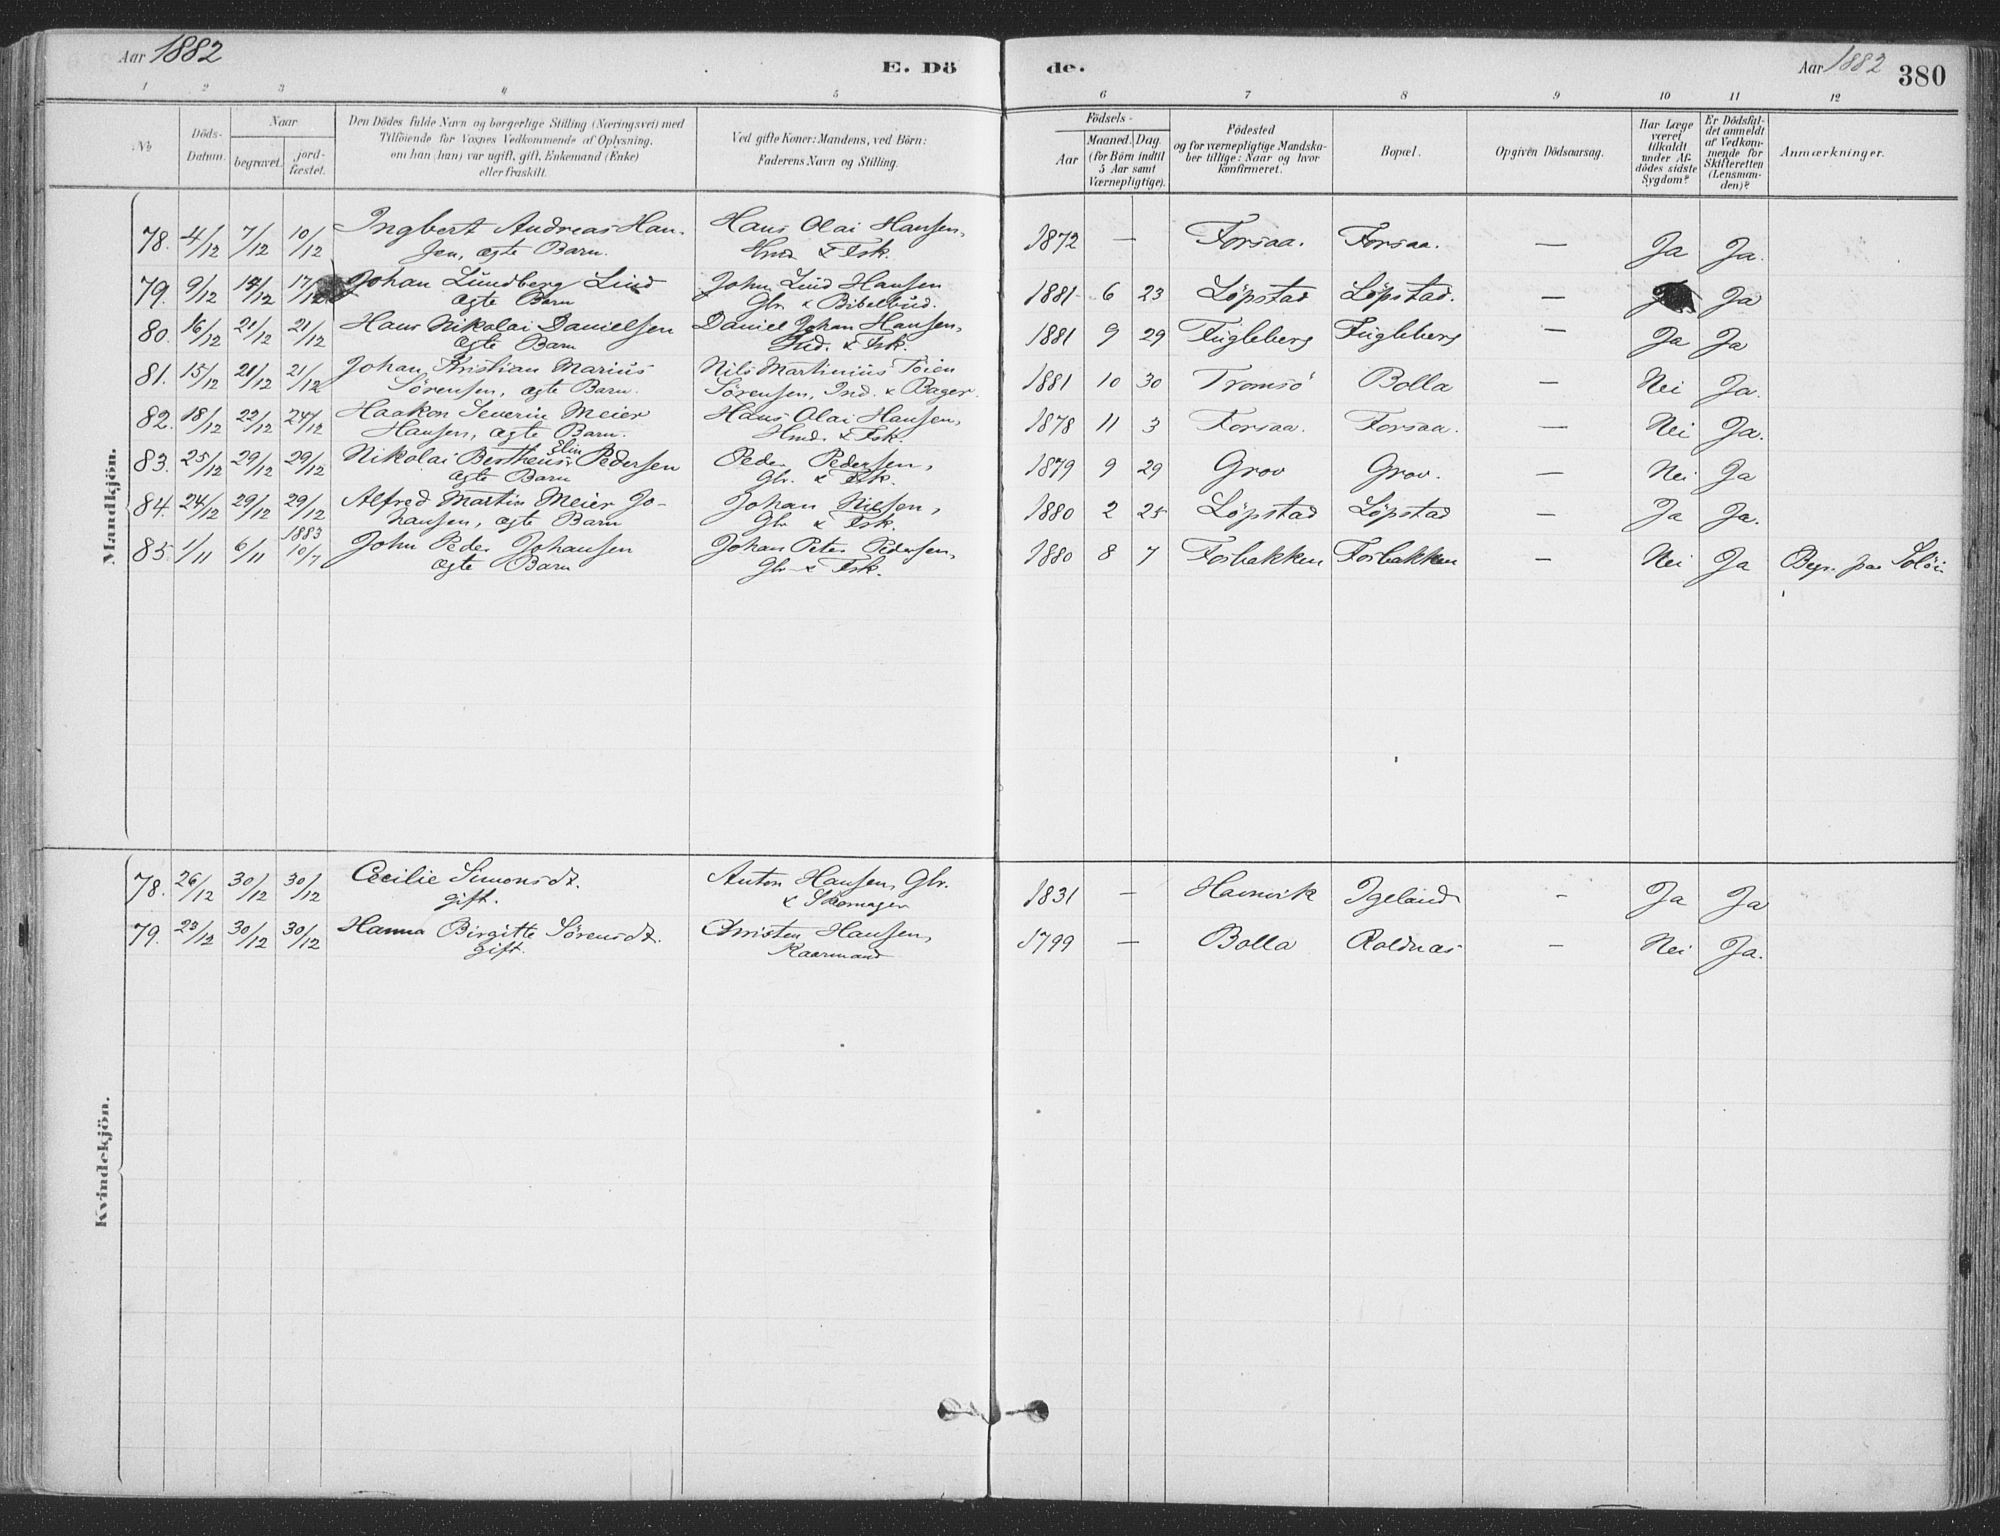 Aar 1882
E. Dö
de.
Aar 1882
380
1 2 3 4 5 6 7 8 9 10 11 12
No
Döds-
Datum.
Naar
begravet.
jord-
fæstet.
Den Dödes fulde Navn og borgerlige Stilling (Næringsvei) med
Tilföiende for Voxnes Vedkommende af Oplysning,
om han (hun) var ugift, gift, Enkemand (Enke)
eller fraskilt.
Ved gifte Koner: Mandens, ved Börn:
Faderens Navn og Stilling.
Födsels-
Aar
Maaned. Dag.
(for Börn indtil
5 Aar samt
Værnepligtige).
Födested
og for værnepligtige Mandska-
ber tillige: Naar og hvor
konfirmeret.
Bopæl.
Opgiven Dödsaarsag.
Har Læge
været
tilkaldt
under Af-
dödes sidste
Sygdom?
Er Dödsfal-
det anmeldt
af Vedkom-
mende for
Skifteretten
(Lensman-
den)?
Anmærkninger.
Mandkjön.
78. 4/12 7/12 10/12 Ingbert Andreas Han- Hans Olai Hansen, 1872 — Forsaa. Forsaa. — Ja Ja.
sen, ægte Barn. Hmd. & Fsk.
79. 9/12 17/12 Johan Lundberg Lind John Lind Hansen 1881 6 23 Löpstad Löpstad. — Ja
ægte Barn Gbr. & Bibelbud.
80. 16/12 21/12 21/12 Hans Nikolai Danielsen Daniel Johan Hansen, 1881 9 29 Fugleberg Fugleberg — Ja Ja
ægte Barn Ind. & Fsk.
81. 15/12 21/12 21/12 Johan Kristian Marius Nils Martinius Töien 1881 10 30 Tromsö Bolla — Nei Ja.
Sörensen, ægte Barn. Sörensen, Ind. & Bager.
82. 18/12 22/12 24/12 Haakon Severin Meier Hans Olai Hansen, 1878 11 3 Forsaa. Forsaa. — Nei Ja.
Hansen, ægte Barn. Hmd. & Fsk.
83. 25/12 29/12 29/12 Nikolai Bertheus Elin Pedersen Peder Pedersen, 1879 9 29 Grov Grov. — Nei Ja
ægte Barn Gbr. & Fsk.
84. 24/12 29/12 29/12 Alfred Martin Meier Jo- Johan Nilsen, 1880 2 25 Löpstad Löpstad — Ja Ja.
hansen, ægte Barn Gbr. & Fsk.
1883
85. 1/11 6/11 10/7 John Peder Johansen Johan Peter Pedersen, 1880 8 7 Forbakken Forbakken — Nei Ja Begr. paa
ægte Barn Gbr. & Fsk.
Kvindekjön.
78. 26/12 30/12 30/12 Cecilie Simonsdt. Anton Hansen, Gbr. 1831 — Havnvik Igeland — Ja Ja
gift. & Skomager
79. 23/12 30/12 30/12 Hanna Birgitte Sörensdt. Christen Hansen, 1799 — Bolla Roldnæs — Nei Ja.
gift. Kaarmand